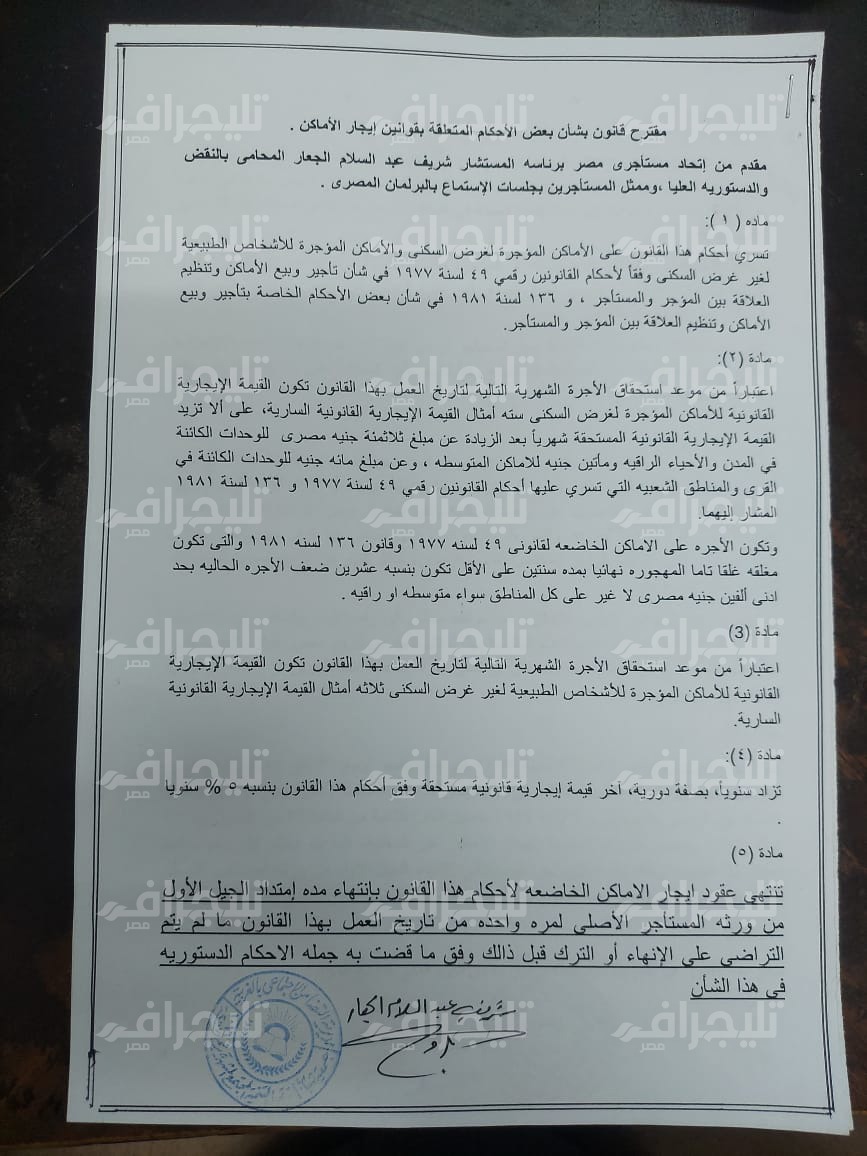 مقترح قانون بشأن بعض الأحكام المتعلقة بقوانين إيجار الأماكن .
مقدم من إتحاد مستأجرى مصر برئاسه المستشار شريف عبد السلام الجعار المحامى بالنقض
والدستوريه العليا ،وممثل المستأجرين بجلسات الإستماع بالبرلمان المصرى .
ماده ( ١ ):
تسري أحكام هذا القانون على الأماكن المؤجرة لغرض السكنى والأماكن المؤجرة للأشخاص الطبيعية
لغير غرض السكنى وفقاً لأحكام القانونين رقمي ٤٩ لسنة ١٩٧٧ في شأن تأجير وبيع الأماكن وتنظيم
العلاقة بين المؤجر والمستأجر ، و ١٣٦ لسنة ١٩٨١ في شأن بعض الأحكام الخاصة بتأجير وبيع
الأماكن وتنظيم العلاقة بين المؤجر والمستأجر.
مادة (٢):
اعتباراً من موعد استحقاق الأجرة الشهرية التالية لتاريخ العمل بهذا القانون تكون القيمة الإيجارية
القانونية للأماكن المؤجرة لغرض السكنى سته أمثال القيمة الإيجارية القانونية السارية، على ألا تزيد
القيمة الإيجارية القانونية المستحقة شهرياً بعد الزيادة عن مبلغ ثلاثمئة جنيه مصرى للوحدات الكائنة
في المدن والأحياء الراقيه ومأتين جنيه للاماكن المتوسطه ، وعن مبلغ مائه جنيه للوحدات الكائنة في
القرى والمناطق الشعبيه التي تسري عليها أحكام القانونين رقمي ٤٩ لسنة ١٩٧٧ و ١٣٦ لسنة ١٩٨١
المشار إليهما.
وتكون الأجره على الاماكن الخاضعه لقانونى ٤٩ لسنه ١٩٧٧ وقانون ١٣٦ لسنه ١٩٨١ والتى تكون
مغلقه غلقا تاما المهجوره نهائيا بمده سنتين على الأقل تكون بنسبه عشرين ضعف الأجره الحاليه بحد
ادنى ألفين جنيه مصرى لا غير على كل المناطق سواء متوسطه او راقيه .
مادة (3)
اعتباراً من موعد استحقاق الأجرة الشهرية التالية لتاريخ العمل بهذا القانون تكون القيمة الإيجارية
القانونية للأماكن المؤجرة للأشخاص الطبيعية لغير غرض السكنى ثلاثه أمثال القيمة الإيجارية القانونية
السارية.
مادة (٤):
تزاد سنوياً، بصفة دورية، آخر قيمة إيجارية قانونية مستحقة وفق أحكام هذا القانون بنسبه ٥ % سنويا
.
مادة (٥)
تنتهى عقود ايجار الاماكن الخاضعه لأحكام هذا القانون بإنتهاء مده إمتداد الجيل الأول
من ورثه المستأجر الأصلى لمره واحده من تاريخ العمل بهذا القانون ما لم يتم
التراضي على الإنهاء أو الترك قبل ذالك وفق ما قضت به جمله الاحكام الدستوريه
في هذا الشأن
شريف عبد السلام الجعار
تليجراف مصر